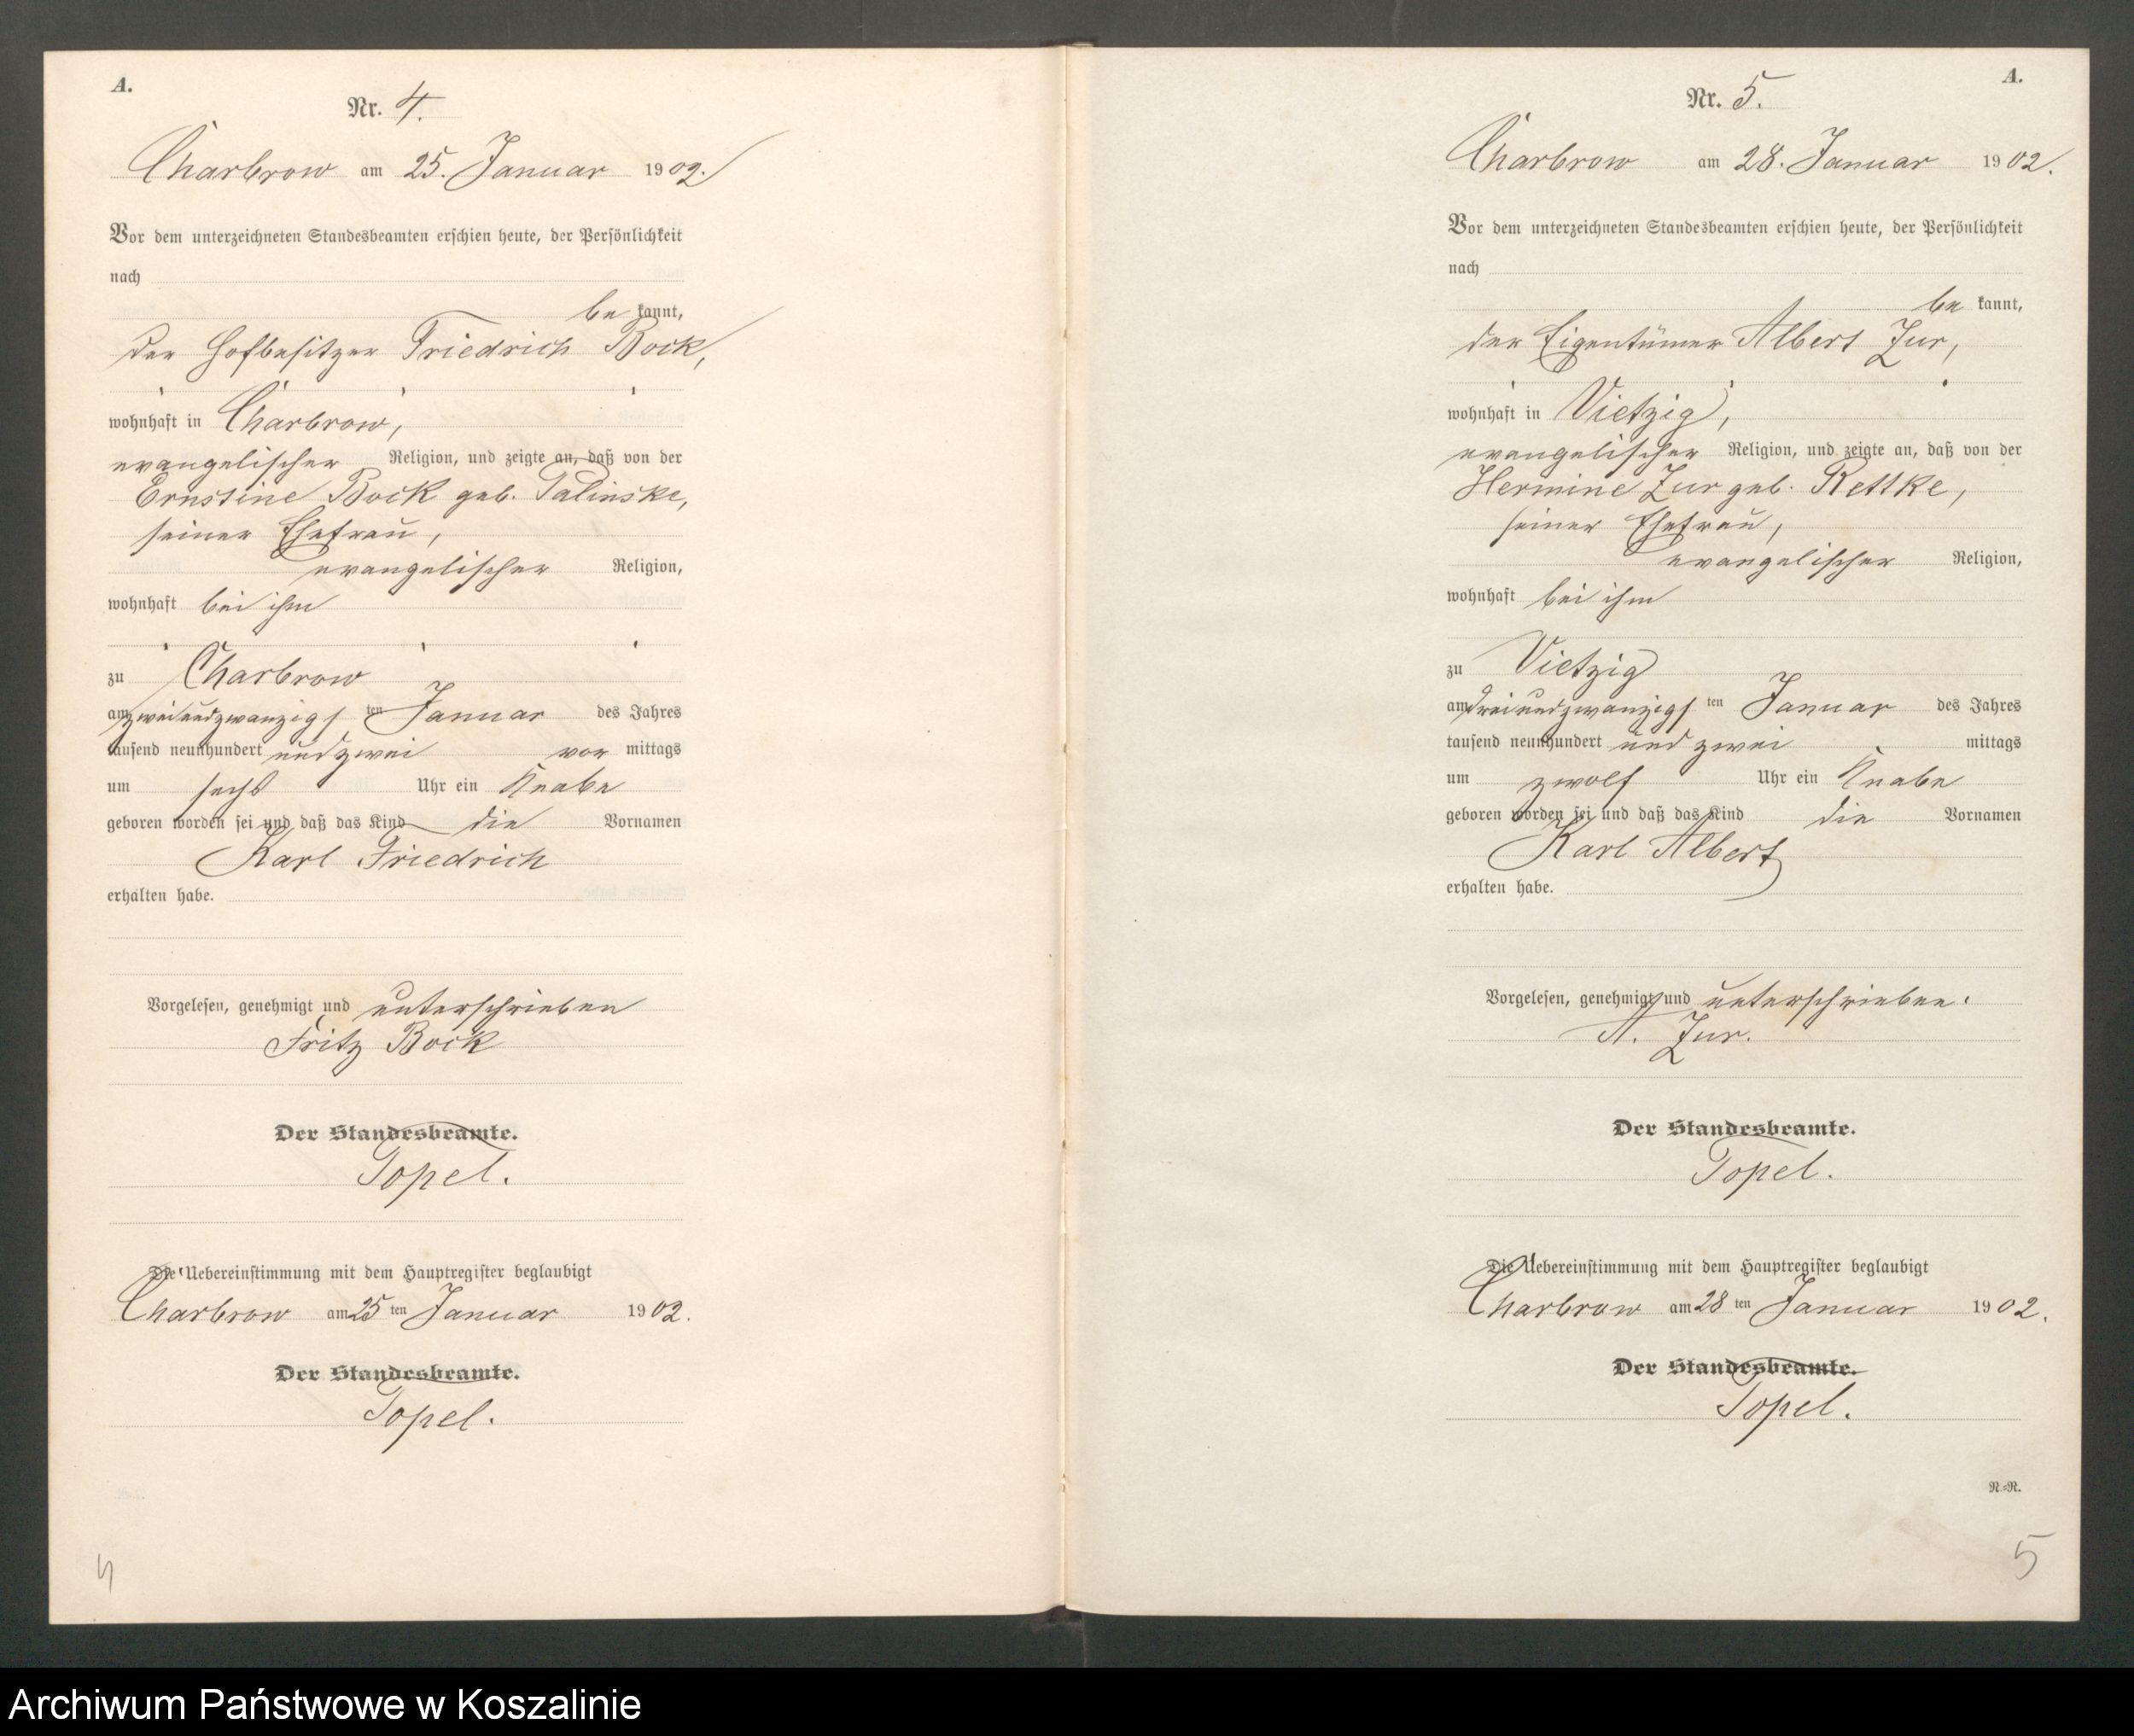 A.
Nr. 4.
Charbrow am 25. Januar 1902.
Vor dem unterzeichneten Standesbeamten erschien heute, der Persönlichkeit
nach
be kannt,
der Hofbesitzer Friedrich Bock,
wohnhaft in Charbrow,
evangelischer Religion, und zeigte an, daß von der
Ernstine Bock geb. Palinske,
seiner Ehefrau,
evangelischer Religion,
wohnhaft bei ihm
zu Charbrow
am zweiundzwanzigsten Januar des Jahres
tausend neunhundert und zwei vor mittags
um sechs Uhr ein Knabe
geboren worden sei und daß das Kind die Vornamen
Karl Friedrich
erhalten habe.
Vorgelesen, genehmigt und unterschrieben
Fritz Bock
Der Standesbeamte.
Topel.
Die Uebereinstimmung mit dem Hauptregister beglaubigt
Charbrow am 25 ten Januar 1902.
Der Standesbeamte.
Topel.
4
A.
Nr. 5.
Charbrow am 28. Januar 1902.
Vor dem unterzeichneten Standesbeamten erschien heute, der Persönlichkeit
nach
be kannt,
der Eigentümer Albert Zur,
wohnhaft in Vietzig,
evangelischer Religion, und zeigte an, daß von der
Hermine Zur geb. Rettke,
seiner Ehefrau,
evangelischer Religion,
wohnhaft bei ihm
zu Vietzig
am dreiundzwanzigsten Januar des Jahres
tausend neunhundert und zwei mittags
um zwölf Uhr ein Knabe
geboren worden sei und daß das Kind die Vornamen
Karl Albert
erhalten habe.
Vorgelesen, genehmigt und unterschrieben.
A. Zur.
Der Standesbeamte.
Topel.
Die Uebereinstimmung mit dem Hauptregister beglaubigt
Charbrow am 28 ten Januar 1902.
Der Standesbeamte.
Topel.
N.=N.
5
Archiwum Państwowe w Koszalinie